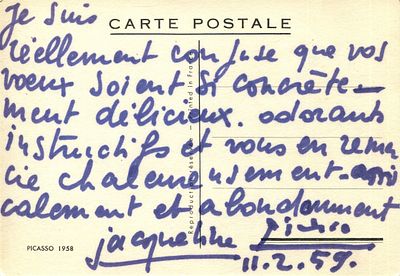 Je suis
CARTE POSTALE
réellement confuse que vos
voeux soient si concrète-
ment délicieux. odorants
instructifs et vous en remer
cie chaleureusement - ami
calement et abondamment
jacqueline Picasso
PICASSO 1958
11.2.59.
Printed in France